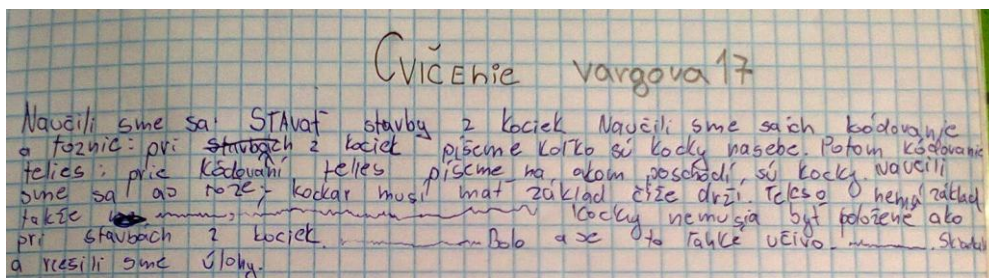 Cvičenie vargova 17
Naučili sme sa: STAvať stavby z kociek Naučili sme sa ich kódovanie
a roznic: pri stavbách z kociek píšeme koľko sú kocky nasebe. Potom kódovanie
telies: prie kódovaní telies píšeme na akom poschodí sú kocky. Naučili
sme sa ao kockar musí mať základ čiže drží. Teleso nemá základ
takže kocky nemusia byť položene ako
pri stavbách z kociek. Bolo a je to ľahké učivo.
a riešili sme úlohy.